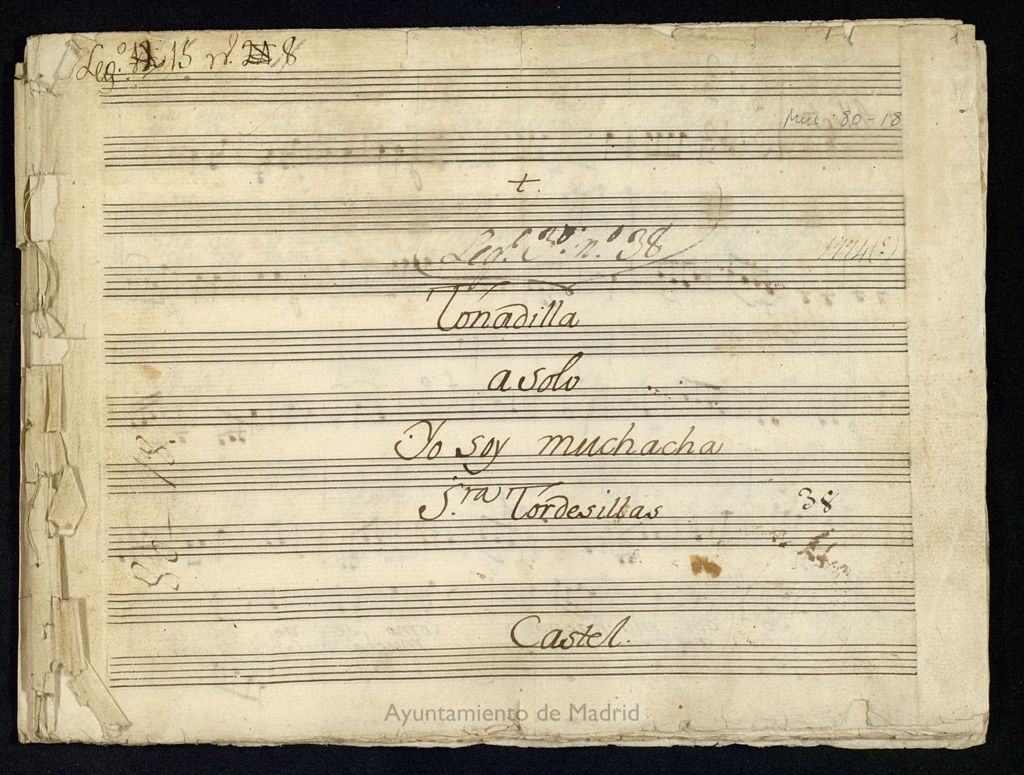 Leg.º 15 n.º 8
Mus 80-18
t.
Leg.º 3º n.º 38
1774(?)
Tonadilla
a solo
Yo soy muchacha
S.ra Tordesillas
38
Castel.
Ayuntamiento de Madrid